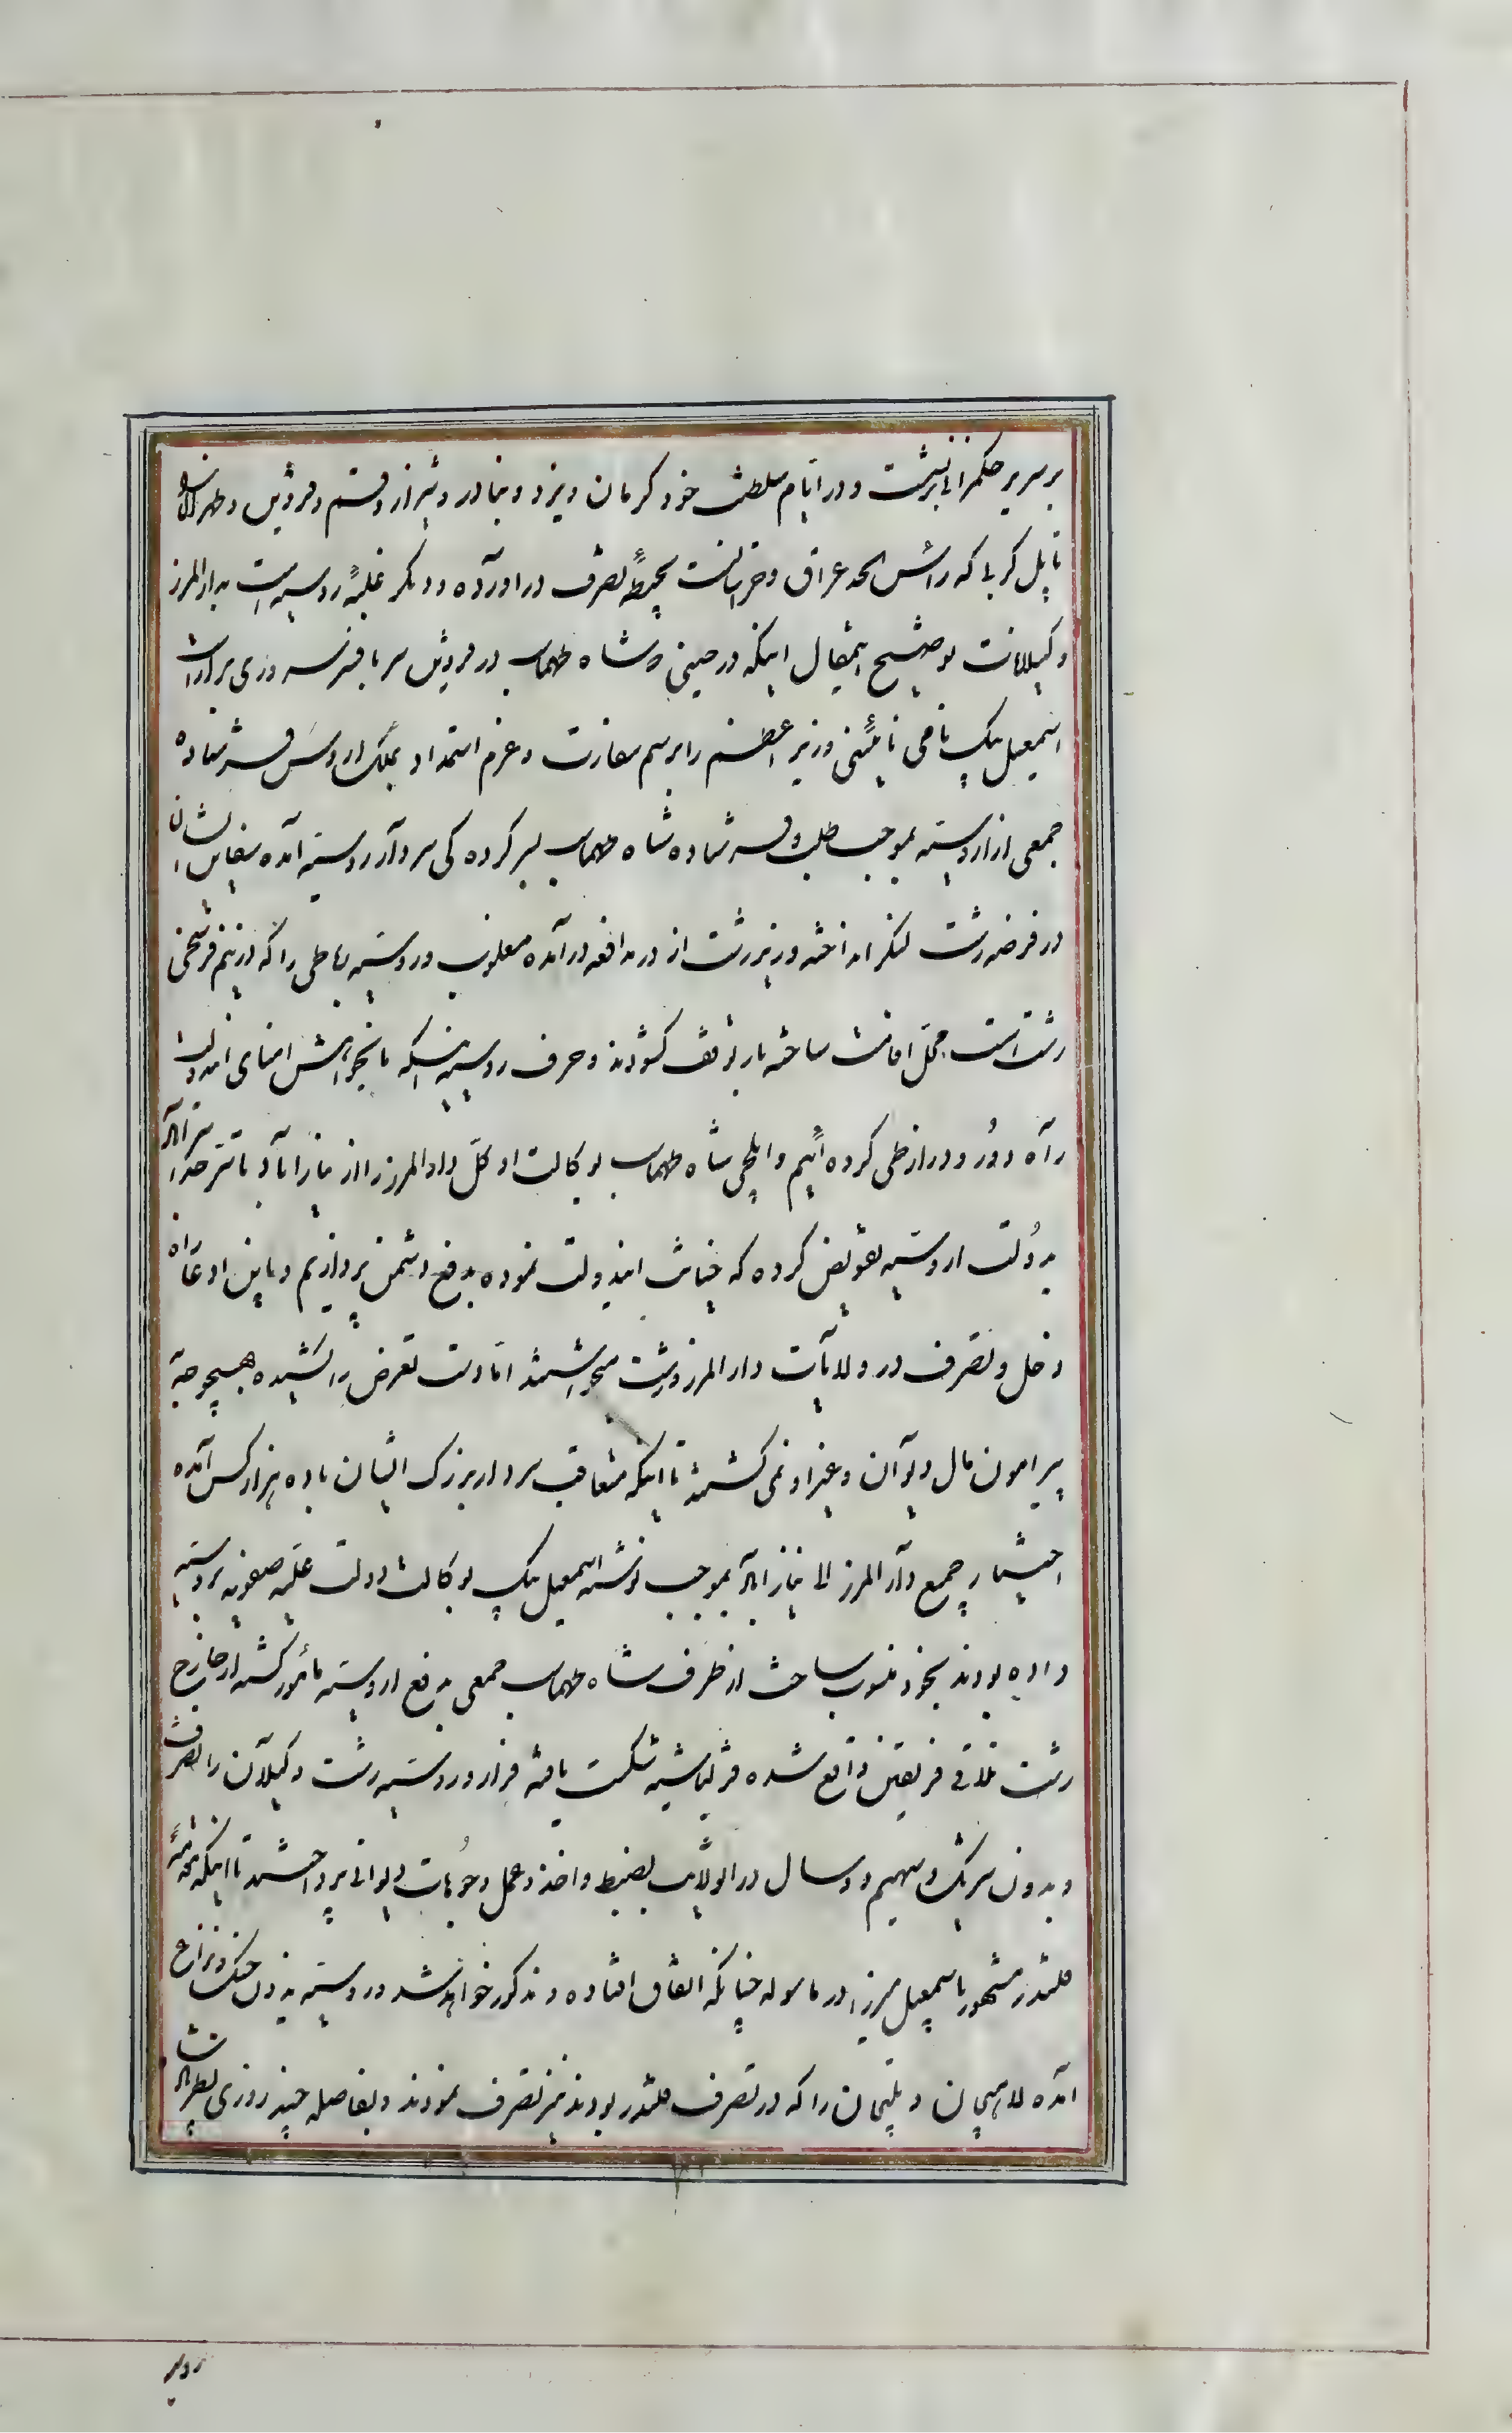 بر سریر حکمرانی نشست و در ایام سلطنت خود کرمان و یزد و بنادر و شیراز و قم و قزوین و طهران را
تا پل کرپی که رأس الحد عراق و خراسانست بحیطهٔ تصرف در اورده و دیگر غلبهٔ روسیه است بدارالمرز
و گیلانات توضیح اینمقال اینکه در حینی که شاه طهماسب در قزوین سر بافسر سروری برافراشت
اسمعیل بیک نامی نایبی وزیر اعظم را برسم سفارت و عزم استمداد بملک اروس فرستاده
جمعی از اروسیه بموجب طلب و فرستاده شاه طهماسب بسرکرده کی سردار روسیه آمده سفاین ایشان
در فرضه رشت لنگر انداخته وزیر رشت از در مدافعه درآمده مغلوب و روسیه رباطی را که در نیم فرسخی
رشت است محل اقامت ساخته بار توقف کشودند و حرف روسیه اینکه ما بخواهش امنای ایندولت
راه دور و دراز طی کرده آئیم و ایلچی شاه طهماسب بوکالت او کل دارالمرز را از نیازآباد تا سرحد استراباد
بدولت اروسیه تفویض کرده که حمایت ایندولت نموده بدفع دشمن پردازیم و باین ادعا راه
دخل و تصرف در ولایات دارالمرز و رشت میخواستند اما دست تعرض را کشیده بهیچوجه
پیرامون مال دیوان و غیر او نمی کشتند تا اینکه متعاقب سردار بزرگ ایشان با ده هزار کس آمده
اختیار جمیع دارالمرز الی نیازآباد بموجب نوشته اسمعیل بیک بوکالت دولت علیه صفویه بروسیه
داده بودند بخود منسوب ساخت از طرف شاه طهماسب جمعی بدفع اروسیه مأمور کشته در خارج
رشت تلاقی فریقین واقع شده قزلباشیه شکست یافته فرار و روسیه رشت و گیلان را تصرف
و بدون شریک و سهیم دو سال در الولایت بضبط و اخذ و عمل وجوهات دیوانی پرداختند تا اینکه
قلندر مشهور باسمعیل میرزا در ماسوله چنانکه اتفاق افتاده و مذکور خواهد شد و روسیه بدون جنگ و نزاع
آمده لاهیجان و دیلمان را که در تصرف قلندر بودند نیز تصرف نمودند و بفاصله چند روزی